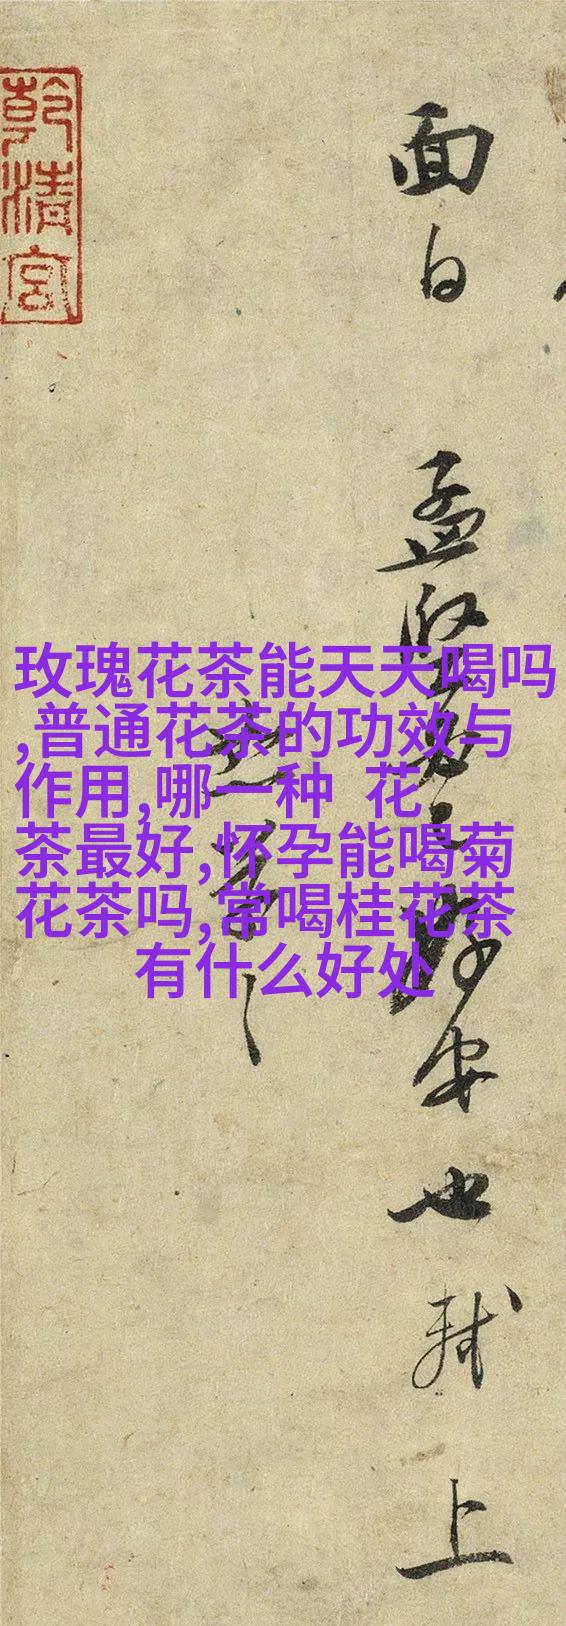 面白
孟坚事已得安也轼上
恐笔
乾清宫
玫瑰花茶能天天喝吗
,普通花茶的功效与
作用,哪一种 花
茶最好,怀孕能喝菊
花茶吗,常喝桂花茶
有什么好处